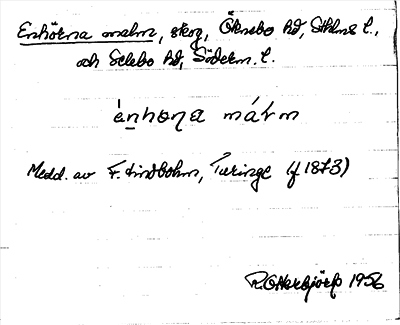 Enhörna malm, skog, Öknebo hd, Sthlms l.,
och Selebo hd, Söderm. l.
ènhoṇa márm
Medd. av F. Lindbohm, Turinge (f 1873)
R. Otterbjörk 1956